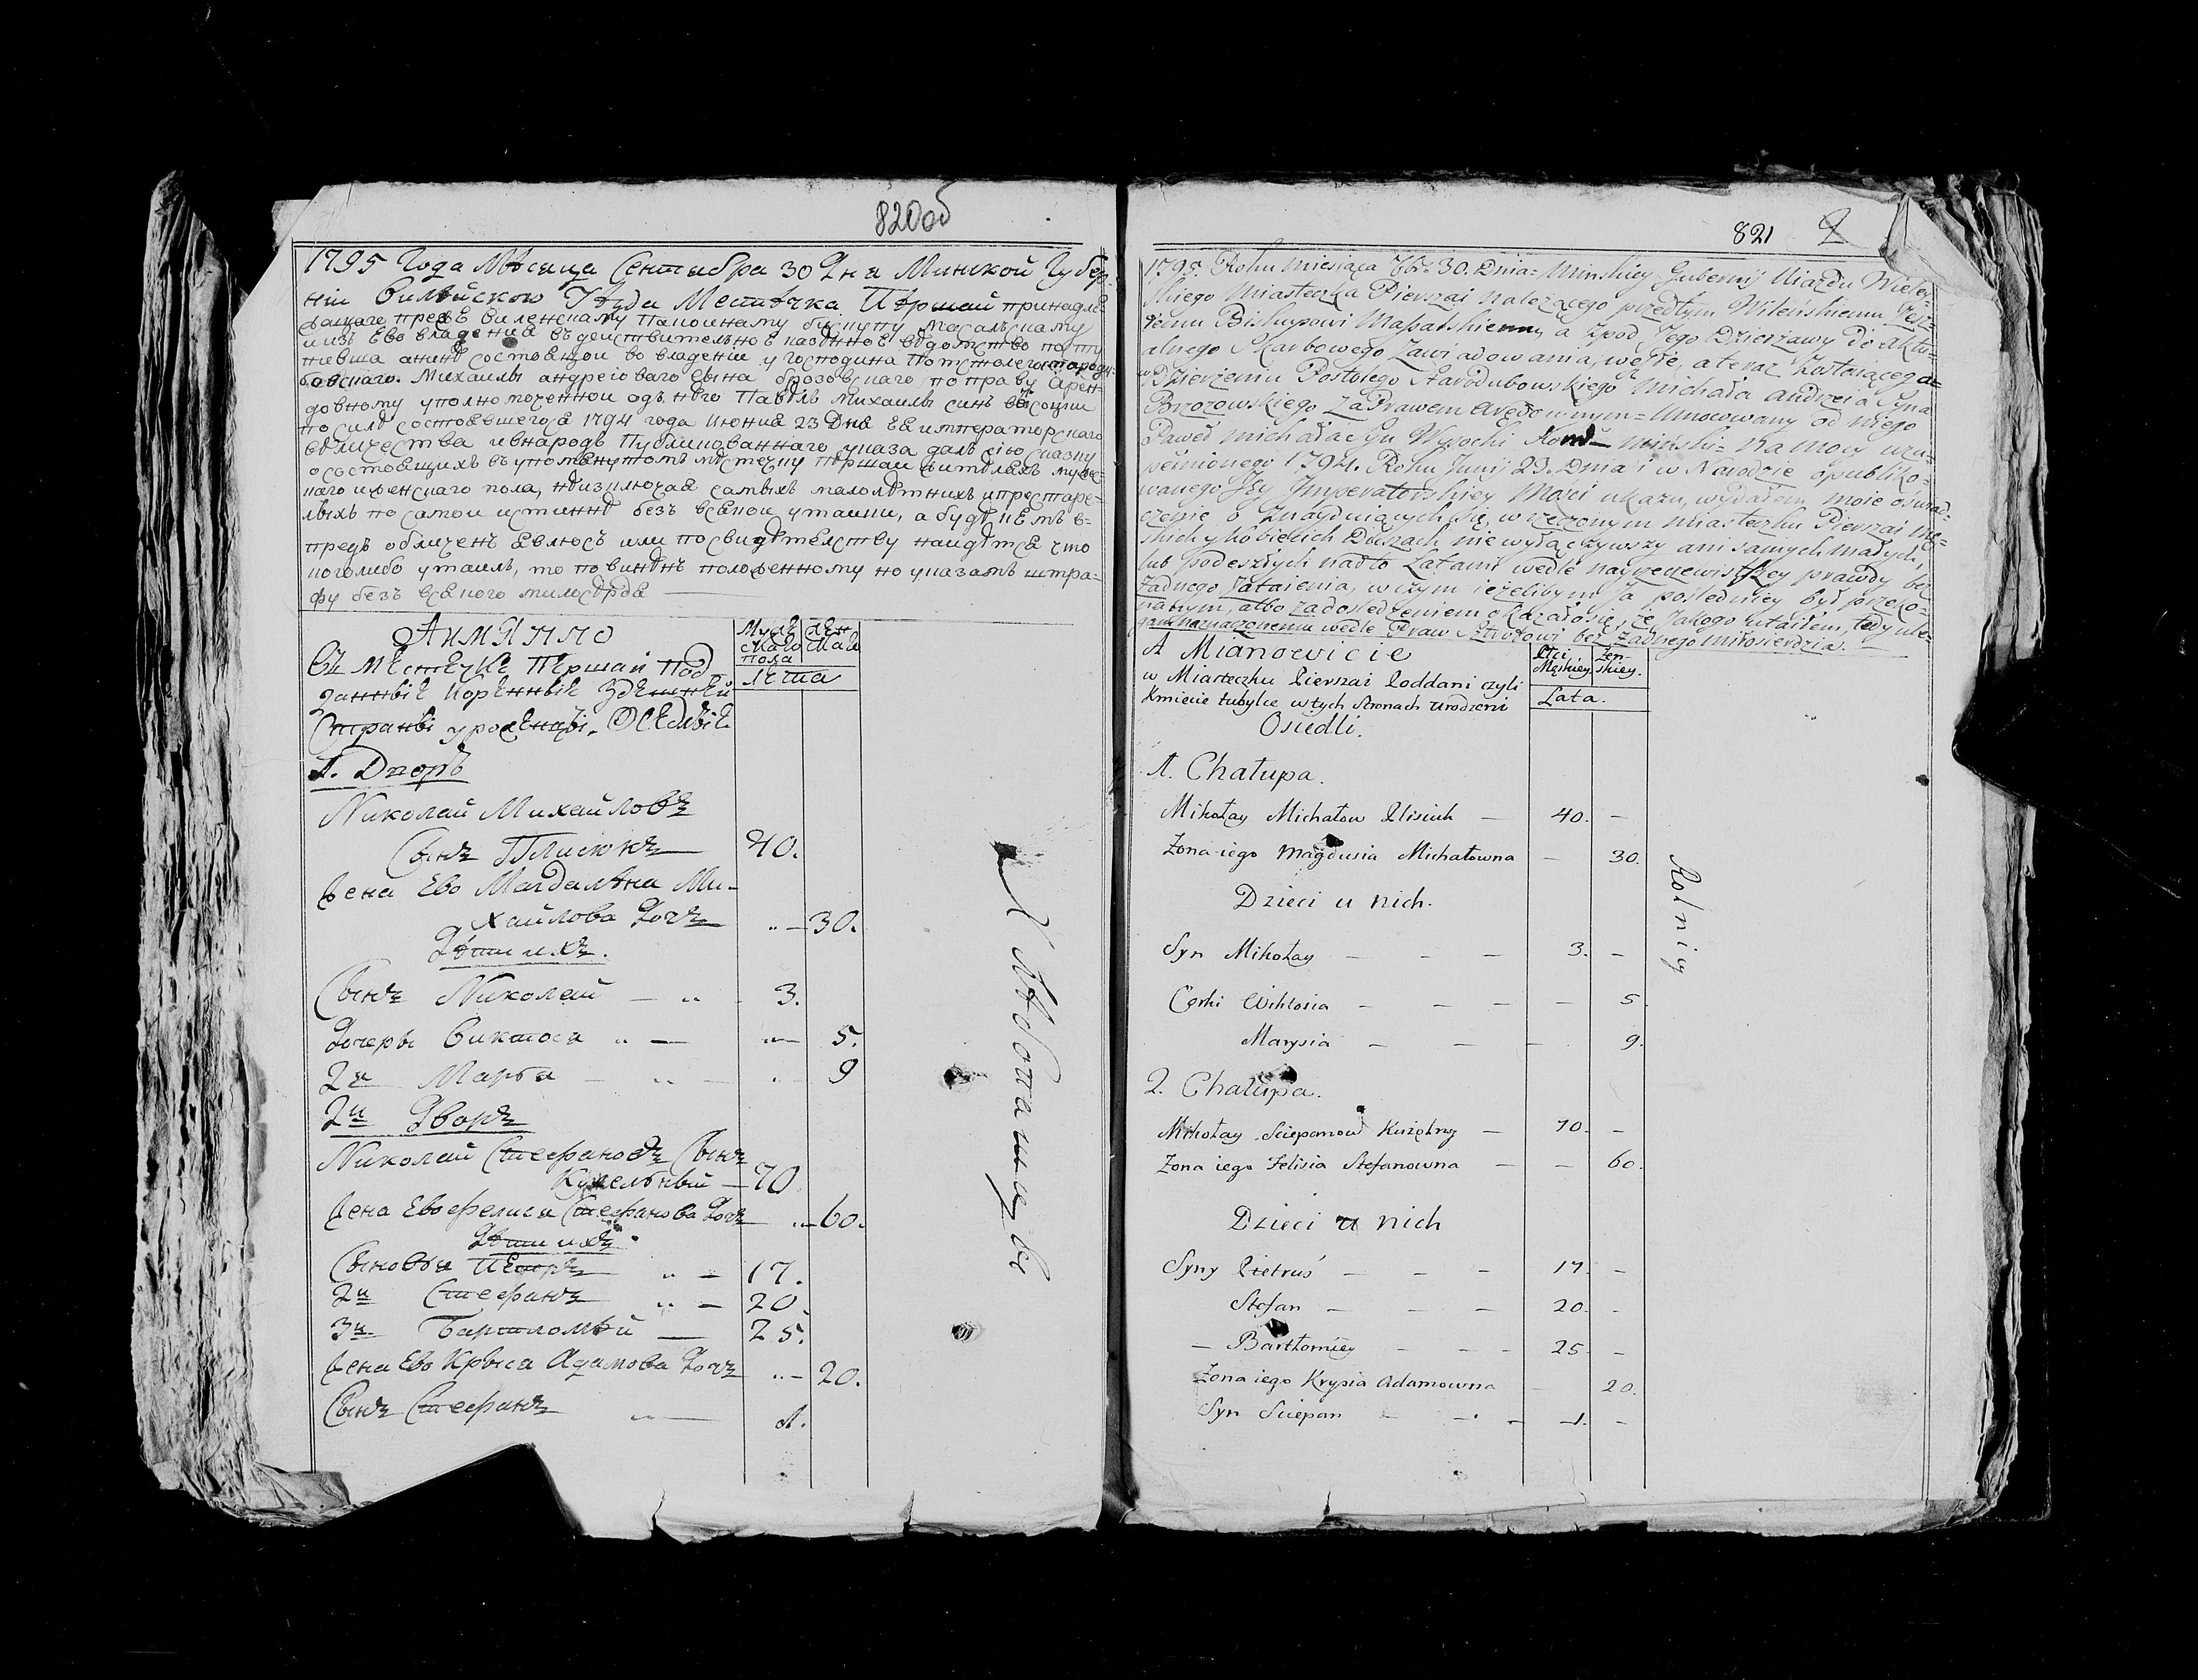 820об
1795 Года Мѣсяца Сентября 30 Дня Минской Губер-
ніи Вилѣйского Уѣзда Местечка Першай принадле-
жащаго прежде виленскому бискупу Масальскому
и изъ Ево владения въ действительное казенное ведомство
а нине состоящои во владении у господина
Михаилы андреіоваго сына брозовскаго по праву арен-
довному уполномоченнои одъ него Павелъ Михаилы синъ высоцки
по силе состоявшегося 1794 года Июния 23 Дня Ея императорскаго
величества и внародъ Публикованнаго указа далъ сію сказку
о состоящихъ въ упомянутомъ местечку першаи жителяхъ мужес-
каго и женскаго пола, не изключая самыхъ малолетнихъ и престаре-
лыхъ по самои истинне безъ всякои утаики, а буде в чемъ в-
предь обличенъ явлюсъ или по свидетелству наидется что
коголибо утаилъ, то повиненъ положенному по указамъ штра-
фу безъ всякого милосердя
А имянно
Въ местечке Першай Под
данные коренные здешней
Страны уроженцы, Оседлые
Мужескаго пола
Женскаго
Лета
1. Дворъ
Николай Михайловъ
Сынъ Плисюкъ 40.
Жена Ево Магдалена Ми-
хайлова Дочь 30.
Дѣти ихъ.
Сынъ Николай 3.
Дочеры Виктося 5.
2я Марья 9
2й Дворъ
Николай Стефановъ Сынъ
Кужельный 70
Жена Ево фелися Стефанова Дочь 60.
Дѣти ихъ
Сыновья Петръ 17.
2й Стефанъ 20.
3й Бартломѣй 25.
Жена Ево Крыся Адамова Дочь 20.
Сынъ Стефанъ 1.
821 2
1795. Roku miesiąca 7br 30. Dnia Minskiey Gubernij Uiazdu Wieley-
skiego Miasteczka Pierszai należącego przedtym Wileńskiemu
Biskupowi Massalskiemu, a zpod Jego Dzierżawy do aktu-
alnego Skarbowego zawiadowania weszłe, a teraz zostaiącego
w Dzierżeniu Starodubowskiego Michała Andrzeia Syna
Brzozowskiego za Prawem Arędownym Umocowany od niego
Paweł Michała Syn Wysocki na mocy uzu-
pełnionego 1794. Roku Junij 23. Dnia i w Narodzie opubliko-
wanego Jey Imperatorskiey Mości ukazu, wydałem moie oświad-
czenie o znayduiących się w rzeczonym Miasteczku Pierszai mę-
skich y kobiecich Duszach nie wyłączywszy ani samych małych,
lub podeszłych nadto Latami wedle nayrzeczewistszey prawdy bez
żadnego zataienia, w czym ieżelibym Ja posledniey był przeko-
nanym, albo za dosledzeniem okazałosię, że Jakogo utaiłem, tedy ule-
gam naznaczonemu wedle Praw Sztrofowi bez żadnego miłosierdzia.
A Mianowicie
w Miasteczku Pierszai Poddani czyli
Kmiecie tubylce w tych Stronach urodzeni
Osiedli.
Płci Męskiey.
Żeńskiey.
Lata.
1. Chałupa.
Mikołay Michałow Plisiuk 40.
Żona iego Magdusia Michałowna 30.
Dzieci u nich.
Syn Mikołay 3.
Corki Wiktosia 5.
Marysia 9.
2. Chałupa.
Mikołay Sciepanow Kużelny 70.
Żona iego Felisia Stefanowna 60.
Dzieci u nich
Syny Pietruś 17.
Stefan 20.
Bartłomiey 25.
Żona iego Krysia Adamowna 20.
Syn Sciepan 1.
Rolnicy